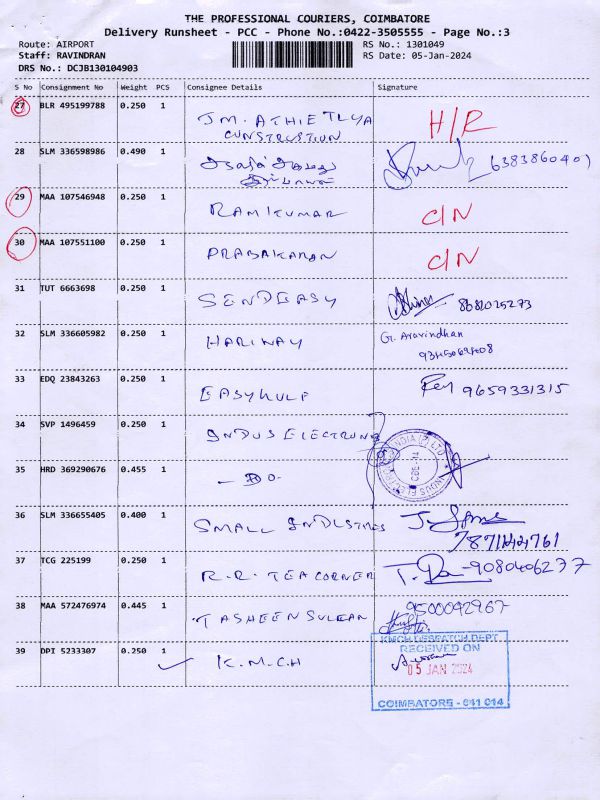 THE PROFESSIONAL COURIERS, COIMBATORE
Delivery Runsheet - PCC - Phone No.:0422-3505555 - Page No.:3
Route: AIRPORT
RS No.: 1301049
Staff: RAVINDRAN
RS Date: 05-Jan-2024
DRS No.: DCJB130104903
S No Consignment No Weight PCS Consignee Details Signature
27 BLR 495199788 0.250 1
CONSTRUCTION H/R
28 SLM 336598986 0.490 1
6383860407
29 MAA 107546948 0.250 1
RAMKUMAR C/N
30 MAA 107551100 0.250 1
PRABAKARAN C/N
31 TUT 6663698 0.250 1
SENDEASY
32 SLM 336605982 0.250 1
G. Aravindhan
33 EDQ 23843263 0.250 1
9659331315
34 SVP 1496459 0.250 1
INDUS ELECTRONI
35 HRD 369290676 0.455 1
- DO -
36 SLM 336655405 0.400 1
SMALL INDUSTRIES
37 TCG 225199 0.250 1
R.R. TEA CORNER 9080406277
38 MAA 572476974 0.445 1
9500092967
39 DPI 5233307 0.250 1
K.M.C.H
KMCH DESPATCH DEPT
RECEIVED ON
05 JAN 2024
COIMBATORE - 641 014